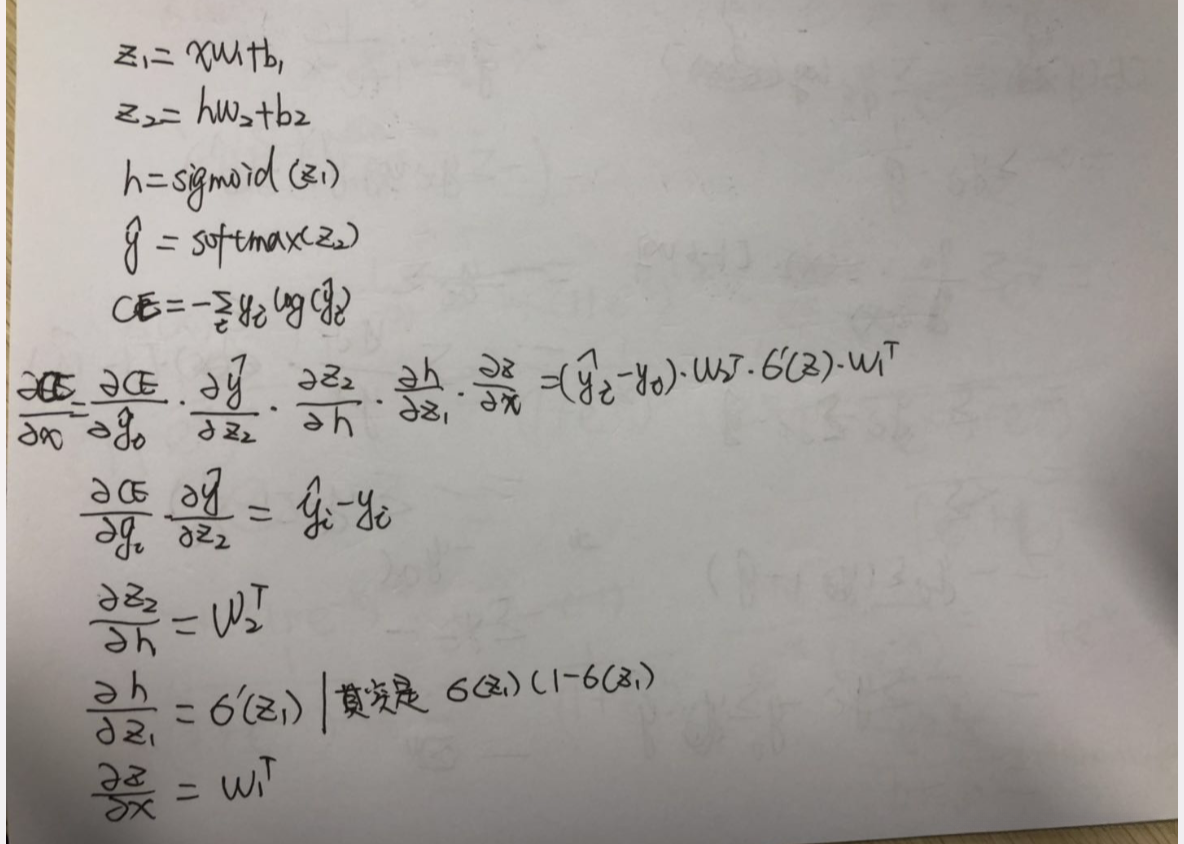 z₁ = xw₁+b₁
z₂ = hw₂+b₂
h = sigmoid(z₁)
ŷ = softmax(z₂)
CE = -∑ᵢ yᵢ log(ŷᵢ)
∂CE/∂x = ∂CE/∂ŷ₀ · ∂ŷ/∂z₂ · ∂z₂/∂h · ∂h/∂z₁ · ∂z/∂x = (ŷᵢ-y₀)·W₂ᵀ·σ'(z)·W₁ᵀ
∂CE/∂ŷᵢ ∂ŷ/∂z₂ = ŷᵢ-yᵢ
∂z₂/∂h = W₂ᵀ
∂h/∂z₁ = σ'(z₁) | 其实是 σ(z₁)(1-σ(z₁)
∂z/∂x = W₁ᵀ